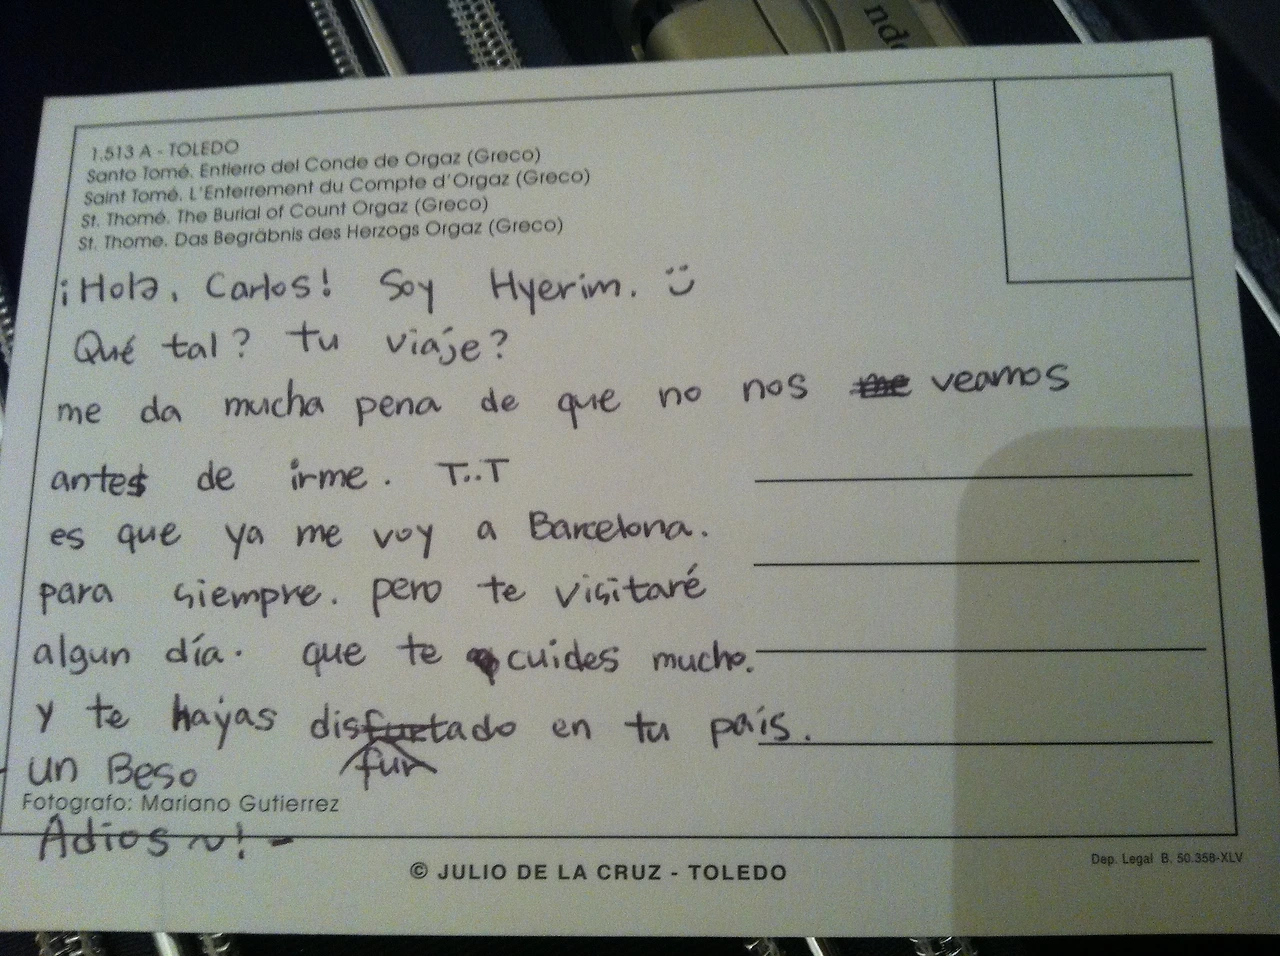 ndo
1.513 A - TOLEDO
Santo Tomé. Entierro del Conde de Orgaz (Greco)
Saint Tomé. L'Enterrement du Compte d'Orgaz (Greco)
St. Thomé. The Burial of Count Orgaz (Greco)
St. Thome. Das Begräbnis des Herzogs Orgaz (Greco)
¡Hola, Carlos! Soy Hyerim. :)
Qué tal? tu viaje?
me da mucha pena de que no nos me veamos
antes de irme. T..T
es que ya me voy a Barcelona.
para siempre. pero te visitaré
algun día. que te cuides mucho.
y te hayas disfurtado en tu país.
fur
un Beso
Fotografo: Mariano Gutierrez
Adios ~! -
© JULIO DE LA CRUZ - TOLEDO
Dep. Legal B. 50.358-XLV